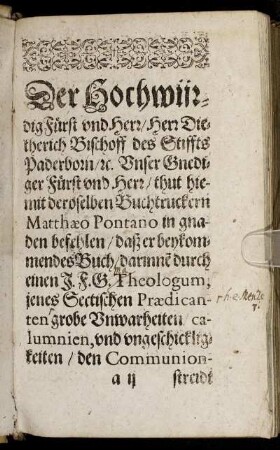 Der Hochwür-
dig Fürst vnd Herr/ Herr Die-
therich Bischoff des Stiffts
Paderborn/ ꝛc. Vnser Gnedi-
ger Fürst vnd Herr/ thut hie-
mit deroselben Buchtruckern
Matthæo Pontano in gna-
den befehlen/ daß er beykom-
mendes Buch/ darinnẽ durch
einen J. F. G. Theologum,
jenes Sectischen Prædican-
ten grobe Vnwarheiten/ ca-
lumnien, vnd vngeschicklig-
keiten/ den Communion-
a ij streidt